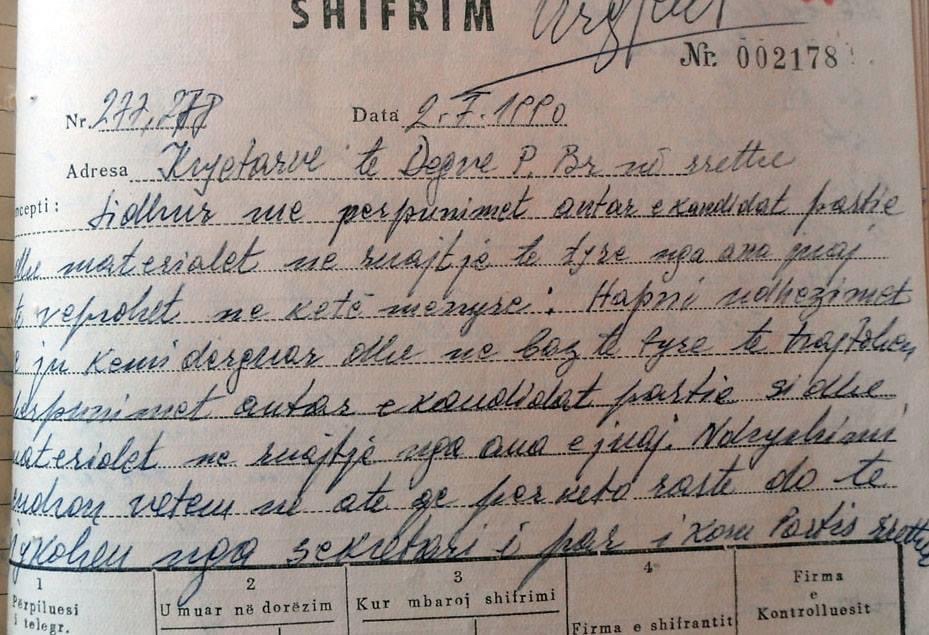 SHIFRIM Urgjent
Nr. 002178
Nr. 277, 278 Data 2.7.1990
Adresa Kryetarve te Degve P. Br në rrethe
ncepti: Lidhur me perpunimet antar e kandidat partie
dhe materialet ne ruajtje te tyre nga ana juaj
te veprohet ne ketë menyre: Hapni udhezimet
ju kemi derguar dhe ne baz te tyre te trajtohen
perpunimet antar e kandidat partie si dhe
materialet ne ruajtje nga ana e juaj. Ndryshimi
qendron vetem ne ate qe per keto raste do te
gjykohen nga sekretari i par i Kom Partis rrethit
1 2 3 4 Firma
Përpiluesi U muar në dorëzim Kur mbaroj shifrimi e
i telegr. Firma e shifrantit Kontrolluesit